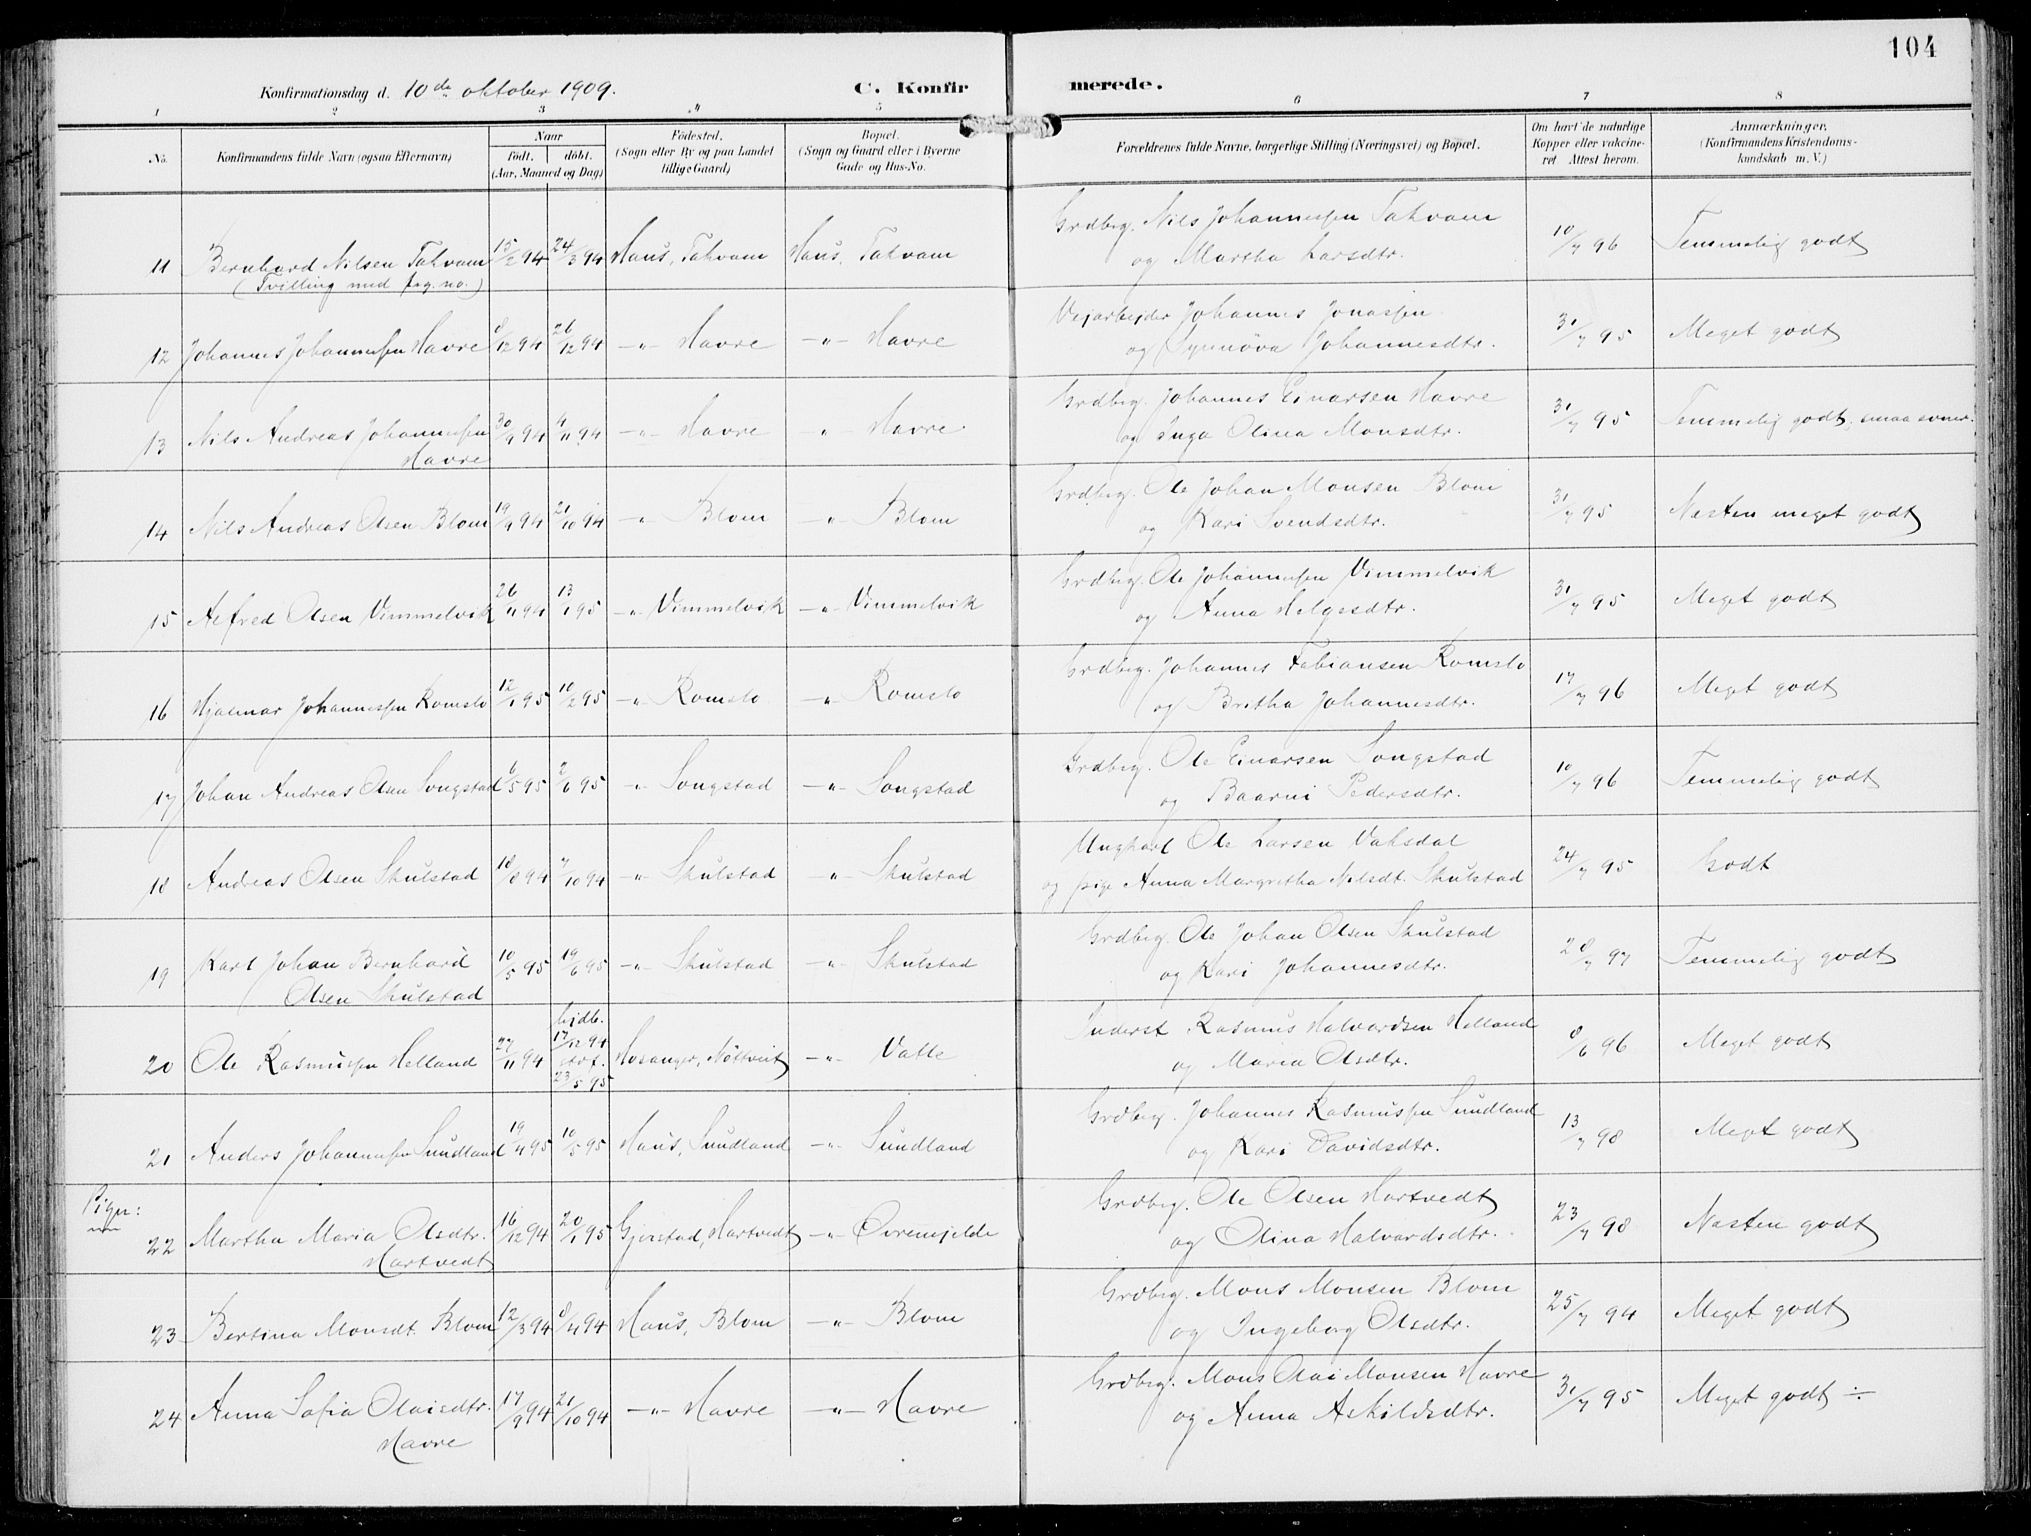 104
Konfirmationsdag d. 10de oktober 1909. C. Konfirmerede.
1 2 3 4 5 6 7 8
No. Konfirmandens fulde Navn (ogsaa Efternavn) Naar født. døbt. (Aar, Maaned og Dag) Fødested. (Sogn eller By og paa Landet tillige Gaard) Bopæl. (Sogn og Gaard eller i Byerne Gade og Hus-No. Forældrenes fulde Navne, borgerlige Stilling (Næringsvei) og Bopæl. Om havt de naturlige Kopper eller vakcineret Attest herom. Anmærkninger. (Konfirmandens Kristendomskundskab m. V.)
11 Bernhard Nilsen Takvam 15/2 94 24/3 94 Haus, Takvam Haus, Takvam Grdbrg. Nils Johannessen Takvam 10/7 96 Temmelig godt
(Tvilling med frg. no.) og Martha Larsdtr.
12 Johannes Johannessen Havre 8/12 94 26/12 94 -"- Havre -"- Havre Vejarbejder Johannes Jonassen 31/7 95 Meget godt
og Synnöva Johannesdtr.
13 Nils Andreas Johannessen 30/9 94 4/11 94 -"- Havre " Havre Grdbrg. Johannes Einarsen Havre 31/7 95 Temmelig godt, smaa evner.
Havre og Inga Olina Monsdtr.
14 Nils Andreas Olsen Blom 19/9 94 21/10 94 -"- Blom -"- Blom Grdbrg. Ole Johan Monsen Blom 31/7 95 Næsten meget godt
og Kari Svendsdtr.
15 Alfred Olsen Vimmelvik 26/11 94 13/1 95 -"- Vimmelvik -"- Vimmelvik Grdbrg. Ole Johannessen Vimmelvik 31/7 95 Meget godt
og Anna Helgesdtr.
16 Hjalmar Johannessen Romslo 12/1 95 10/2 95 -"- Romslo -"- Romslo Grdbrg. Johannes Fabiansen Romslo 17/7 96 Meget godt
og Britha Johannesdtr.
17 Johan Andreas Olsen Songstad 6/5 95 2/6 95 -"- Songstad -"- Songstad Grdbrg. Ole Einarsen Songstad 10/7 96 Temmelig godt
og Baarni Pedersdtr.
18 Andreas Olsen Skulstad 18/8 94 7/10 94 -"- Skulstad -"- Skulstad Ungkarl Ole Larsen Vaksdal 24/7 95 Godt
og pige Anna Margretha Nilsdt. Skulstad
19 Karl Johan Bernhard 10/5 95 19/6 95 -"- Skulstad -"- Skulstad Grdbrg. Ole Johan Olsen Skulstad 28/7 97 Temmelig godt
Olsen Skulstad og Kari Johannesdtr.
20 Ole Rasmussen Helland 27/11 94 hjdb. 17/12 94 stdf. 23/5 95 Hosanger, Nöttveit -"- Vatle Inderst Rasmus Halvardsen Helland 8/6 96 Meget godt
og Maria Olsdtr.
21 Anders Johannessen Sundland 19/4 95 10/5 95 Haus, Sundland -"- Sundland Grdbrg. Johannes Rasmussen Sundland 13/7 98 Meget godt
og Kari Davidsdtr.
Piger:
22 Martha Maria Olsdtr. 16/12 94 20/1 95 Gjerstad, Hartvedt -"- Övremjelde Grdbrg. Ole Olsen Hartvedt 23/7 98 Næsten godt
Hartvedt og Olina Halvardsdtr.
23 Bertina Monsdt. Blom 12/3 94 8/4 94 Haus, Blom -"- Blom Grdbrg. Mons Monsen Blom 25/7 94 Meget godt
og Ingeborg Olsdtr.
24 Anna Sofia Olaisdtr. 17/9 94 21/10 94 -"- Havre -"- Havre Grdbrg. Mons Olai Monsen Havre 31/7 95 Meget godt ÷
Havre og Anna Askildsdtr.